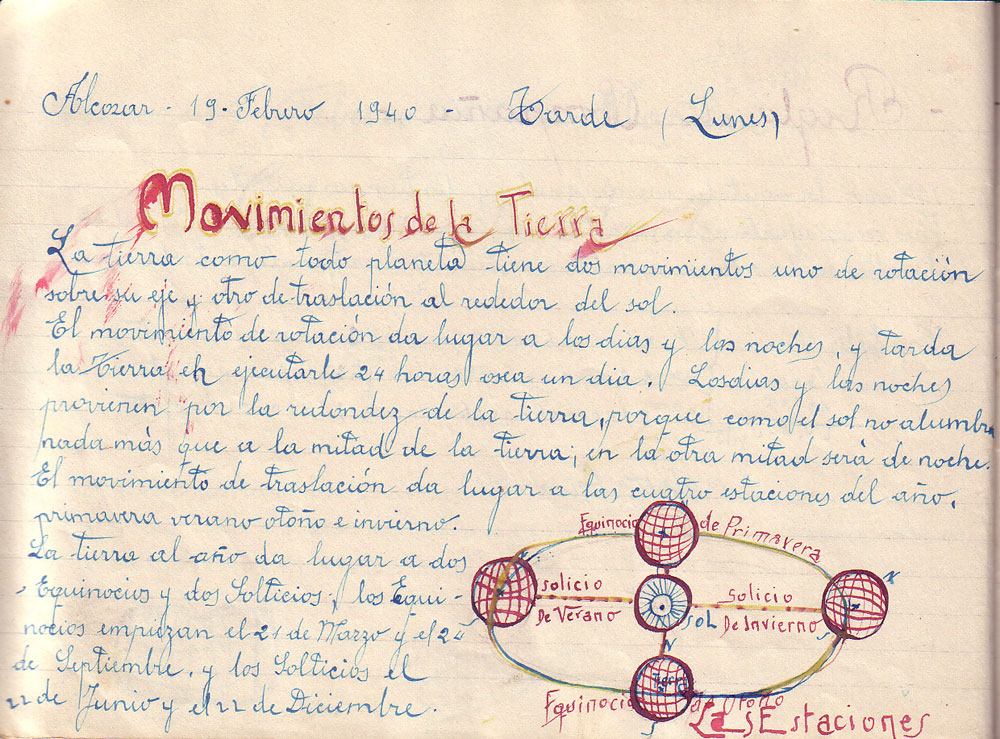 Alcozar - 19 - Febrero 1940 - Tarde (Lunes)
Movimientos de la Tierra
La tierra como todo planeta tiene dos movimientos uno de rotación
sobre su eje y otro de traslación al rededor del sol.
El movimiento de rotación da lugar a los dias y las noches, y tarda
la Tierra en ejecutarle 24 horas osea un dia. Los dias y las noches
provienen por la redondez de la tierra, porque como el sol no alumbra
nada más que a la mitad de la tierra, en la otra mitad será de noche.
El movimiento de traslación da lugar a las cuatro estaciones del año,
primavera verano otoño e invierno.
La tierra al año da lugar a dos
Equinocios y dos Solticios, los Equi-
nocios empiezan el 21 de Marzo y el 24
de Septiembre, y los Solticios el
22 de Junio y el 22 de Diciembre.
Equinocio de Primavera
N
solicio
De Verano
sol
solicio
De Invierno
S
N
Tierra
S
Equinocio de Otoño
Las Estaciones